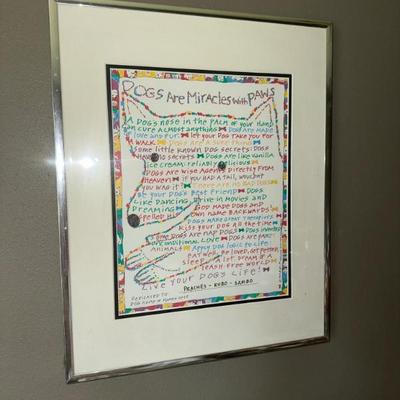 DOGS Are MirACLes with PAWS
A DOG'S NOSE in the PALM of your HAND
CAN CURE ALMOST ANYTHING DOGS ARE MADE
OF LOVE AND FUR. Let your DOG TAKE you FOR
A WALK. DOGS ARE A SURE THING!
SOME little KNOWN DOG SECRETS: DOGS
HAVE NO SECRETS DOGS Are like VANILLA
ice CREAM: reliABLY deLicious
DOGS Are wise AGENTS Directly FROM
HeAVen if you HAD A TAIL, WOULD
you WAG it? THERE ARE NO BAD DOGS
Be your DOG'S Best Friend DOGS
Like DANCING, Drive in Movies AND
DREAMING GOD MADE DOGS AND
SPelled His OWN NAME BACKWARDS!
DOGS MAKE GREAT THERAPISTS
Kiss your DOG All the time
SOME DOGS Are NAP DOGS DOGS invented
unconditional LOVE DOGS ARE PARTY
ANIMALS APPLY DOG LOGIC to Life:
EAT Well, Be LOVED, Get Petted,
SLEEP A LOT, DREAM OF A
LeASH-Free WORLD
Live your DOG'S LIFE!
PEACHES - KUBO - SAMBO
DEDICATED TO